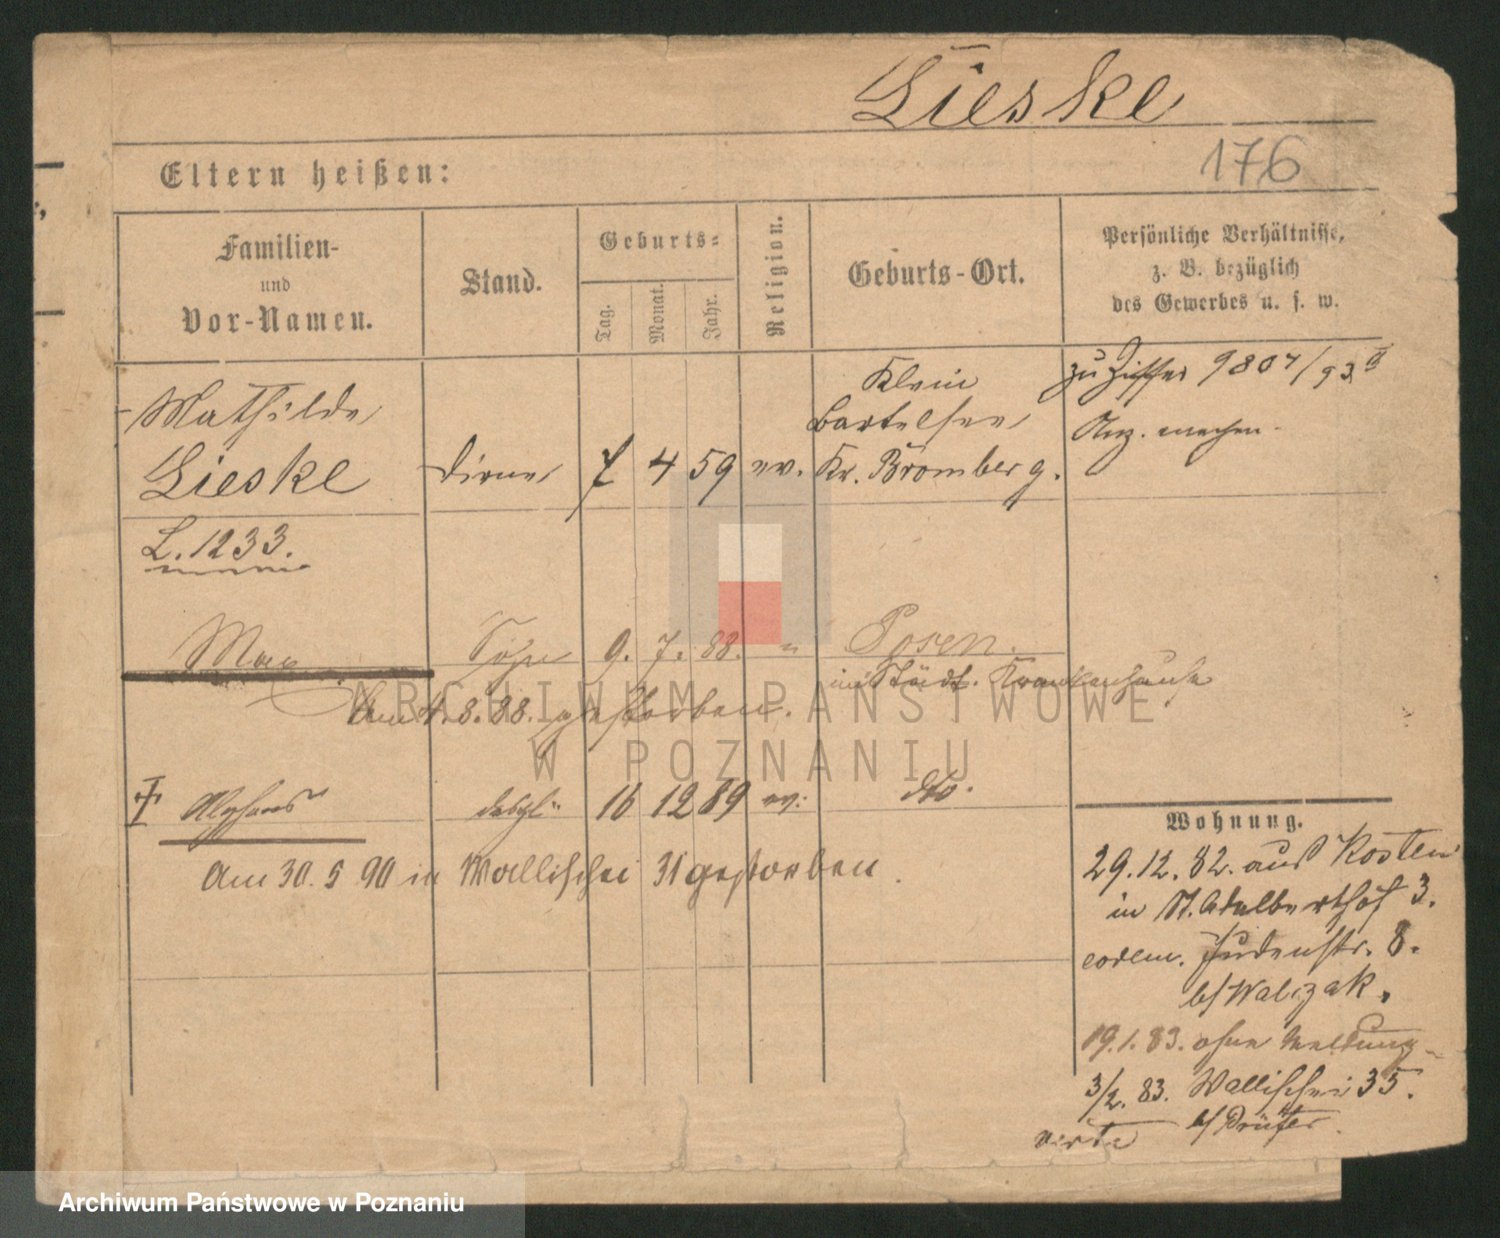 Lieske
176
Eltern heißen:
Familien-
und
Vor-Namen.
Stand.
Geburts-
Tag.
Monat.
Jahr.
Religion.
Geburts-Ort.
Persönliche Verhältnisse,
z. B. bezüglich
des Gewerbes u. s. w.
Mathilde
Lieske
Dirne
7 4 59 ev.
Klein
Bartelsee
Kr. Bromberg.
zu Ziffer 9807/93
Anz. machen
L. 1233.
Max Sohn 9. 7. 88. " Posen.
im Städt. Krankenhause
Am 4. 8. 88. gestorben.
Alphons desgl. 16 12 89 ev. dto.
Am 30. 5 90 in Wallischei 31 gestorben.
Wohnung.
29.12.82. aus Kosten
in St. Adalberthof 3.
eodem. Judenstr. 8.
b/ Walczak.
19.1.83. ohne Meldung
3/2. 83. Wallischei 35.
b/ Prüfer.
verte
ARCHIWUM PAŃSTWOWE
W POZNANIU
Archiwum Państwowe w Poznaniu